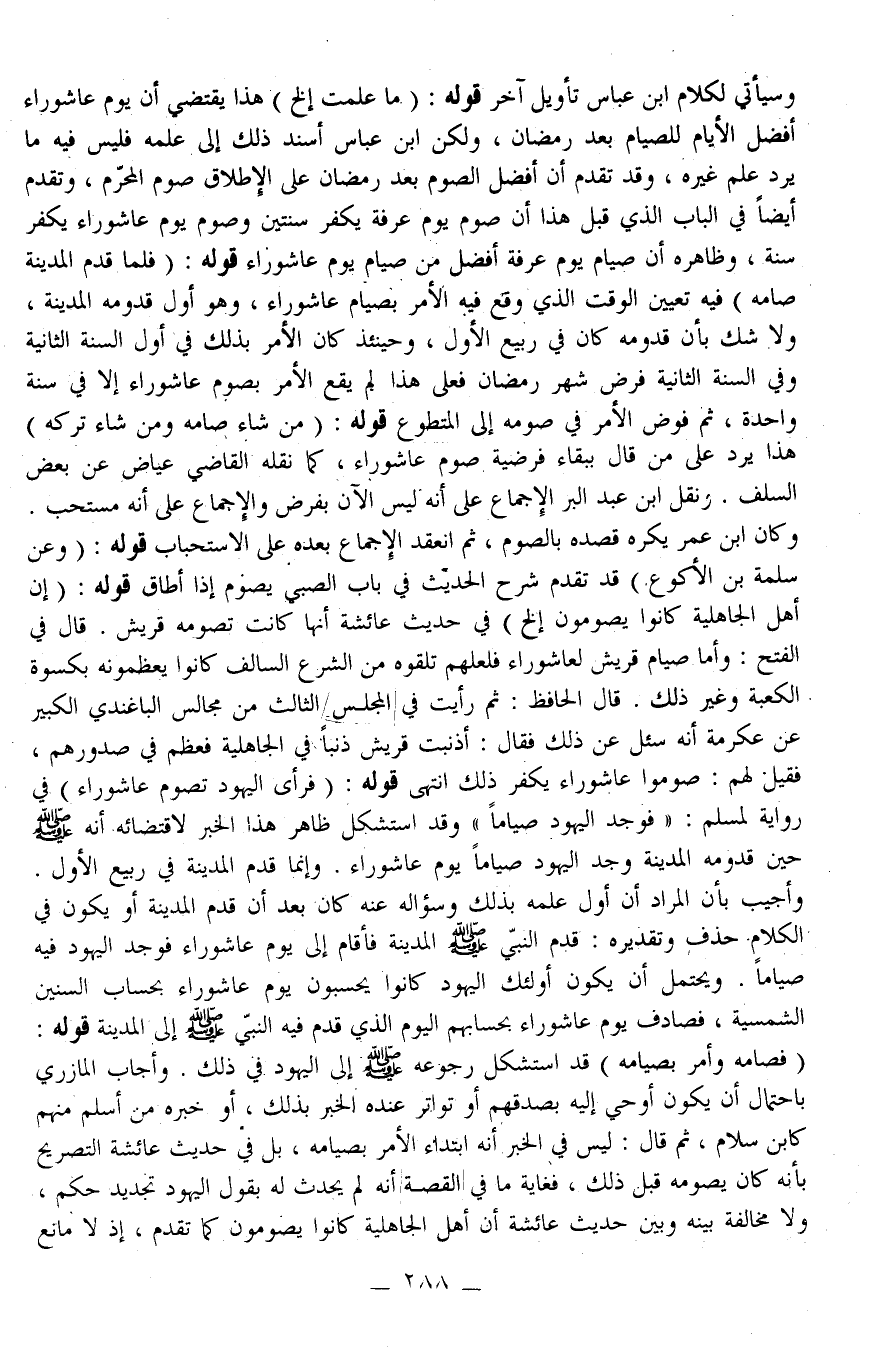 وسيأتي لكلام ابن عباس تأويل آخر قوله : ( ما علمت إلخ ) هذا يقتضي أن يوم عاشوراء
أفضل الأيام للصيام بعد رمضان ، ولكن ابن عباس أسند ذلك إلى علمه فليس فيه ما
يرد علم غيره ، وقد تقدم أن أفضل الصوم بعد رمضان على الإطلاق صوم المحرّم ، وتقدم
أيضاً في الباب الذي قبل هذا أن صوم يوم عرفة يكفر سنتين وصوم يوم عاشوراء يكفر
سنة ، وظاهره أن صيام يوم عرفة أفضل من صيام يوم عاشوراء قوله : ( فلما قدم المدينة
صامه ) فيه تعيين الوقت الذي وقع فيه الأمر بصيام عاشوراء ، وهو أول قدومه المدينة ،
ولا شك بأن قدومه كان في ربيع الأول ، وحينئذ كان الأمر بذلك في أول السنة الثانية
وفي السنة الثانية فرض شهر رمضان فعلى هذا لم يقع الأمر بصوم عاشوراء إلا في سنة
واحدة ، ثم فوض الأمر في صومه إلى المتطوع قوله : ( من شاء صامه ومن شاء تركه )
هذا يرد على من قال ببقاء فرضية صوم عاشوراء ، كما نقله القاضي عياض عن بعض
السلف . ونقل ابن عبد البر الإجماع على أنه ليس الآن بفرض والإجماع على أنه مستحب .
وكان ابن عمر يكره قصده بالصوم ، ثم انعقد الإجماع بعده على الاستحباب قوله : ( وعن
سلمة بن الأكوع ) قد تقدم شرح الحديث في باب الصبي يصوم إذا أطاق قوله : ( إن
أهل الجاهلية كانوا يصومون إلخ ) في حديث عائشة أنها كانت تصومه قريش . قال في
الفتح : وأما صيام قريش لعاشوراء فلعلهم تلقوه من الشرع السالف كانوا يعظمونه بكسوة
الكعبة وغير ذلك . قال الحافظ : ثم رأيت في المجلس الثالث من مجالس الباغندي الكبير
عن عكرمة أنه سئل عن ذلك فقال : أذنبت قريش ذنباً في الجاهلية فعظم في صدورهم ،
فقيل لهم : صوموا عاشوراء يكفر ذلك انتهى قوله : ( فرأى اليهود تصوم عاشوراء ) في
رواية لمسلم : « فوجد اليهود صياماً » وقد استشكل ظاهر هذا الخبر لاقتضائه أنه ﷺ
حين قدومه المدينة وجد اليهود صياماً يوم عاشوراء . وإنما قدم المدينة في ربيع الأول .
وأجيب بأن المراد أن أول علمه بذلك وسؤاله عنه كان بعد أن قدم المدينة أو يكون في
الكلام حذف وتقديره : قدم النبيّ ﷺ المدينة فأقام إلى يوم عاشوراء فوجد اليهود فيه
صياماً . ويحتمل أن يكون أولئك اليهود كانوا يحسبون يوم عاشوراء بحساب السنين
الشمسية ، فصادف يوم عاشوراء بحسابهم اليوم الذي قدم فيه النبيّ ﷺ إلى المدينة قوله :
( فصامه وأمر بصيامه ) قد استشكل رجوعه ﷺ إلى اليهود في ذلك . وأجاب المازري
باحتمال أن يكون أوحي إليه بصدقهم أو تواتر عنده الخبر بذلك ، أو خبره من أسلم منهم
كابن سلام ، ثم قال : ليس في الخبر أنه ابتداء الأمر بصيامه ، بل في حديث عائشة التصريح
بأنه كان يصومه قبل ذلك ، فغاية ما في القصة أنه لم يحدث له بقول اليهود تجديد حكم ،
ولا مخالفة بينه وبين حديث عائشة أن أهل الجاهلية كانوا يصومون كما تقدم ، إذ لا مانع
— ٢٨٨ —